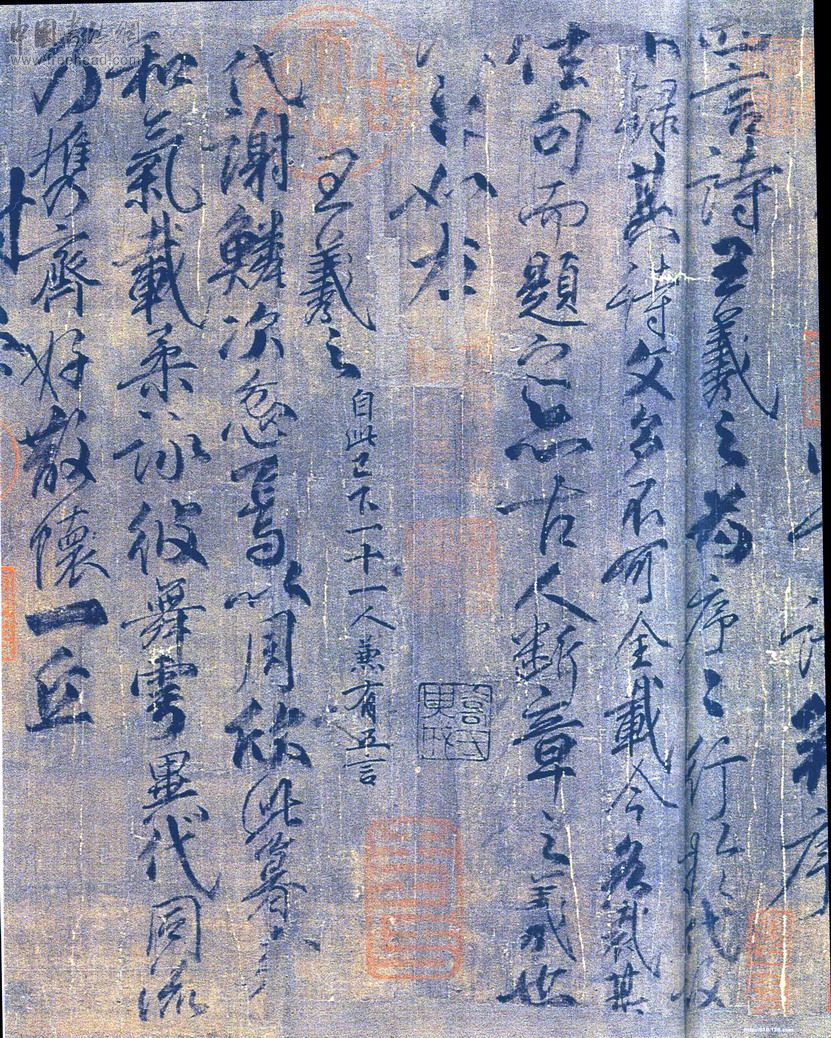 四言詩王羲之為序〻行於代故
不錄其詩文多不可全載今各裁其
佳句而題之亦古人斷章之義也
如左
王羲之 自此已下一十一人兼有五言
代謝鱗次忽焉以周欣此暮春
和氣載柔詠彼舞雩異代同流
乃携齊好散懷一丘
中国书法网
www.freehead.com